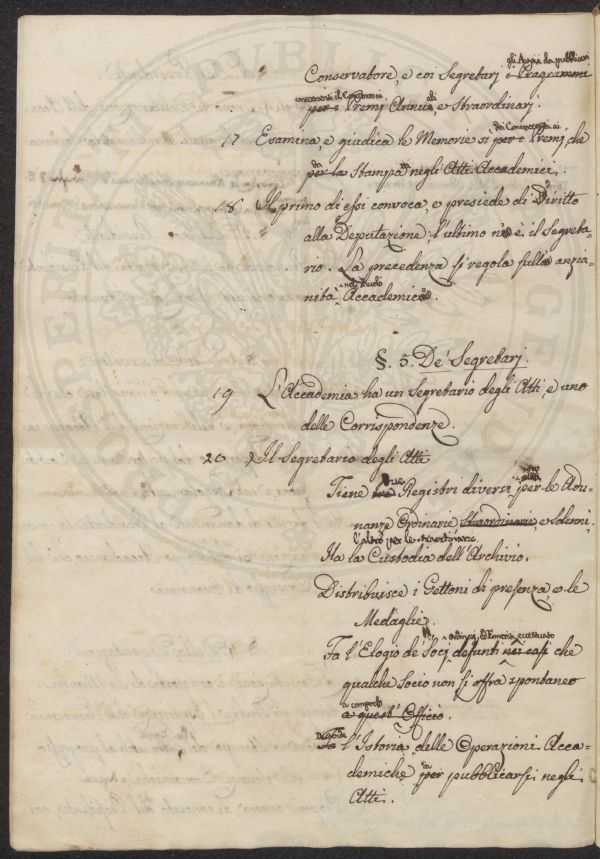 gli Avvisi da pubblicarsi
Conservatore, e coi Segretarj i Programmi
concernenti il Concorso ai
per i Premj Annuali, e Straordinarj.
dei Concorrenti ai
17 Esamina, e giudica le Memorie si per i Premj che
da
per la Stampa negli Atti Accademici.
18 Il primo di essi convoca, e presiede di Diritto
alla Deputazione, l'ultimo n'è il Segreta-
rio. La precedenza si regola sull' anzia-
nità Accademica.
§. 3. De' Segretarj.
19 L'Accademia ha un Segretario degli Atti, e uno
delle Corrispondenze.
20 Il Segretario degli Atti
due uno
Tiene tre Registri diversi per le Adu-
nanze Ordinarie Straordinarie, e Solenni,
l'altro per le straordinarie.
Ha la Custodia dell'Archivio.
Distribuisce i Gettoni di presenza, e le
Medaglie.
Fa l'Elogio de' Socj defunti nei casi che
qualche Socio non si offra spontaneo
a comporlo
a quest' Officio.
Distende
Fa l'Istoria delle Operazioni Acca-
da
demiche per pubblicarsi negli
Atti.